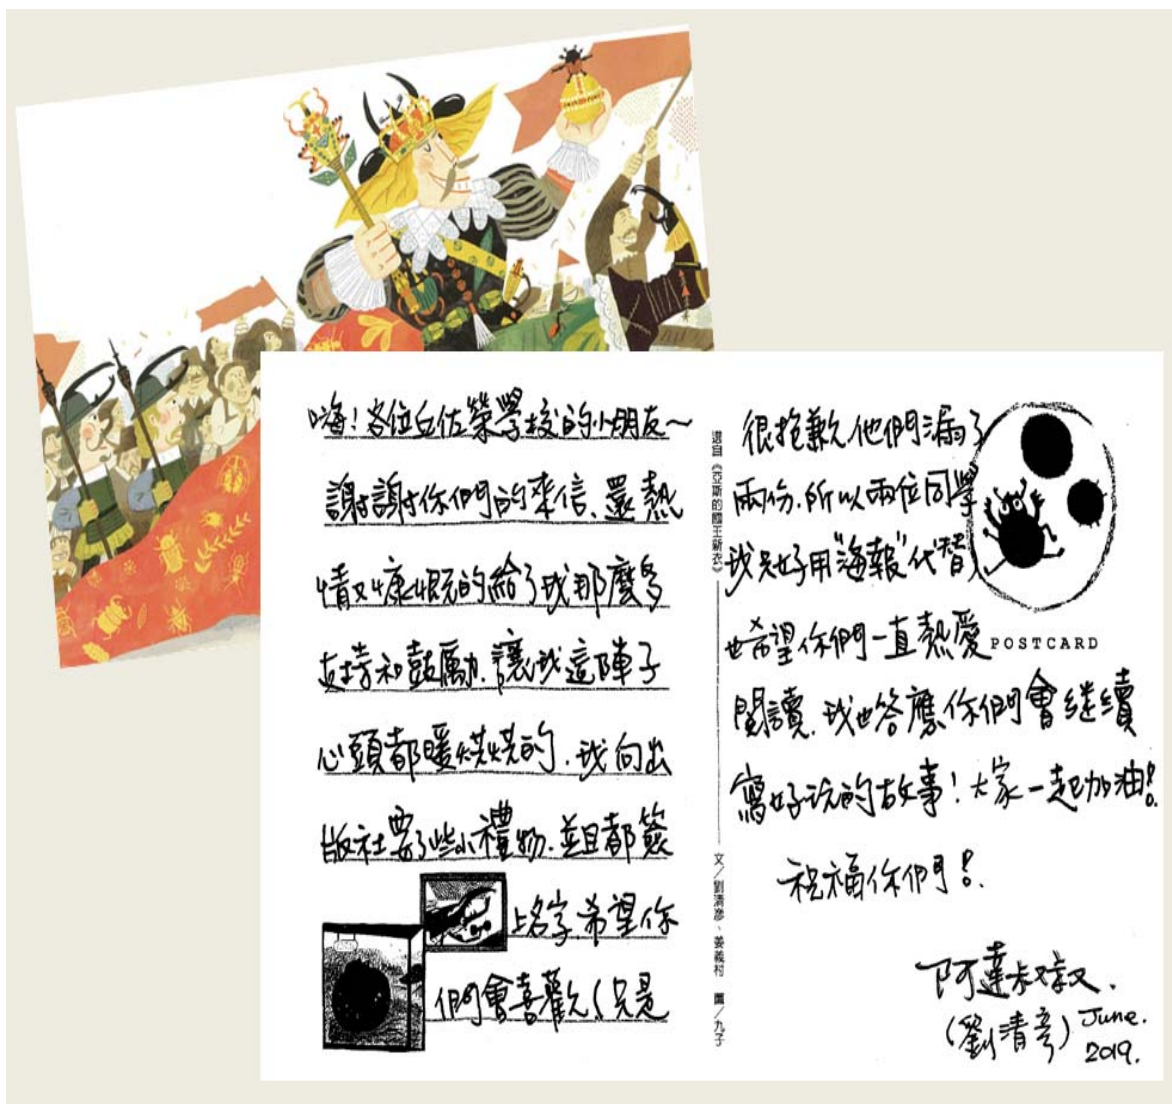 嗨!各位丘佐榮學校的小朋友~
謝謝你們的來信、還熱
情又慷慨的給了我那麼多
支持和鼓勵.讓我這陣子
心頭都暖烘烘的.我向出
版社要了些小禮物.並且都簽
上名字.希望你
們會喜歡(只是
選自《亞斯的國王新衣》
文/劉清彥、姜義村 圖/九子
很抱歉他們漏了
兩份.所以兩位同學
我只好用"海報"代替)
也希望你們一直熱愛
POSTCARD
閱讀.我也答應你們會继續
寫好玩的故事!大家一起加油!
祝福你們!
阿達叔叔.
(劉清彥)June.
2019.